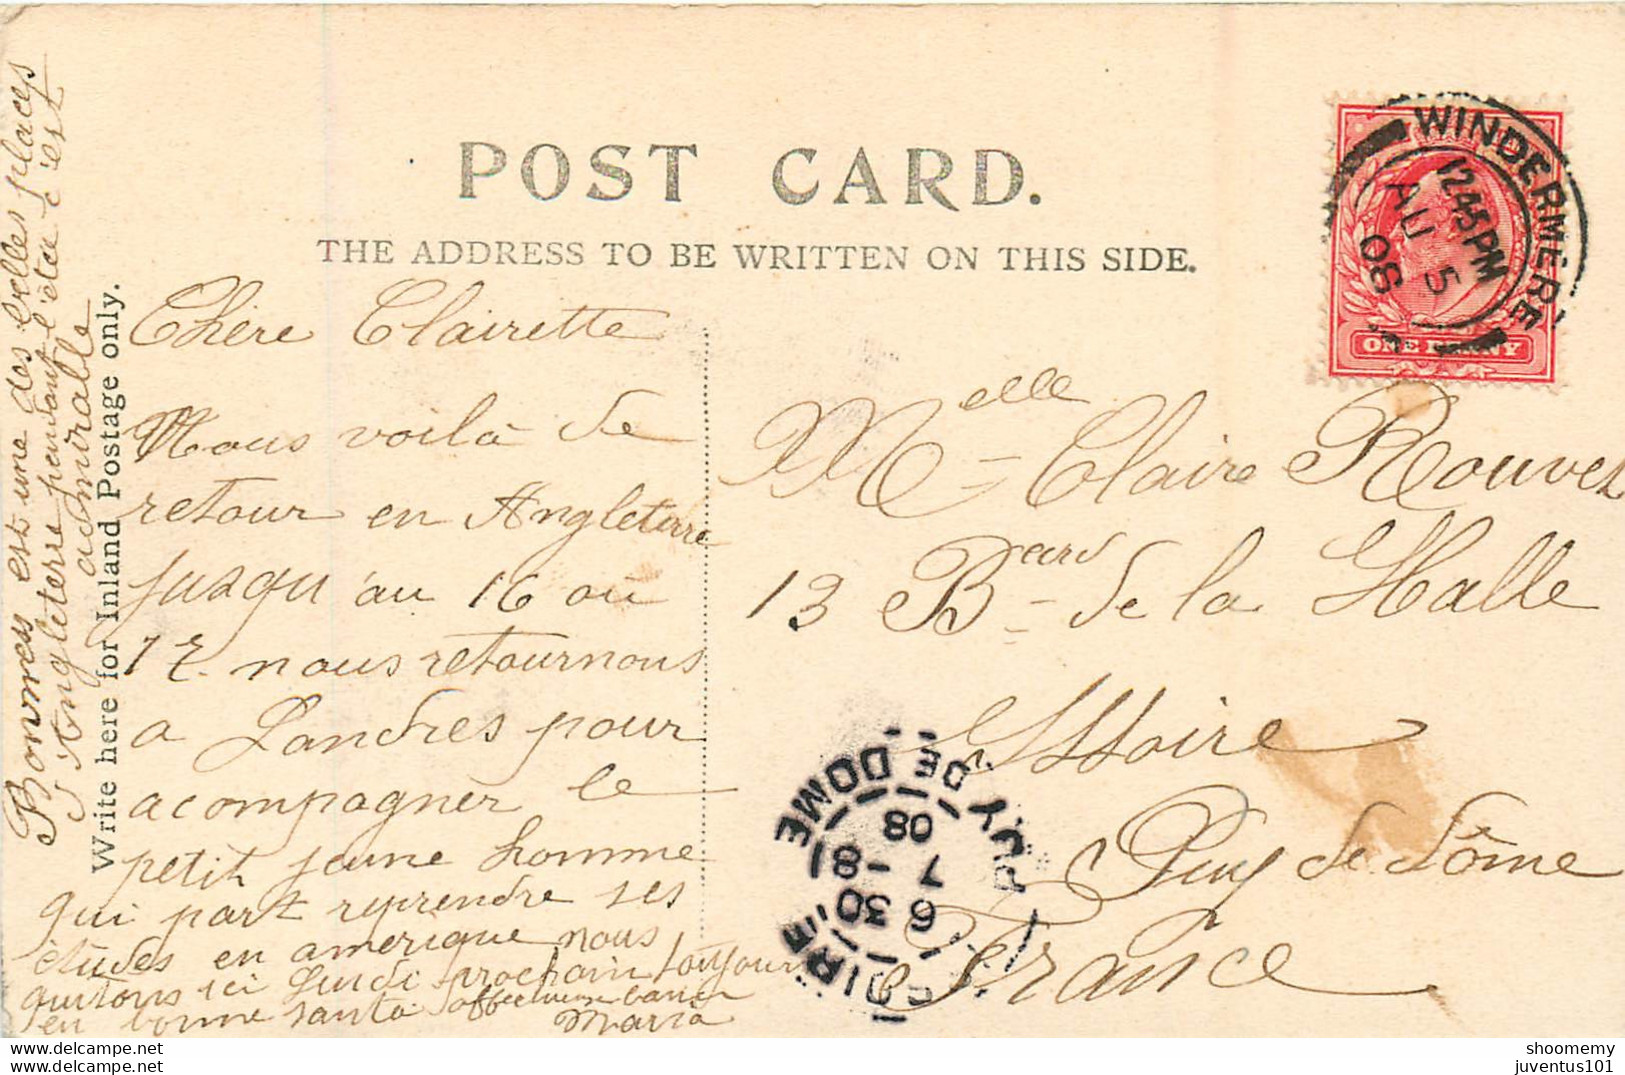 POST CARD.
THE ADDRESS TO BE WRITTEN ON THIS SIDE.
Write here for Inland Postage only.
WINDERMERE
12 45 PM
AU 5
08
ONE PENNY
Chère Clairette
Nous voilà de
retour en Angleterre
jusqu'au 16 où
17. nous retournons
a Londres pour
acompagner le
petit jeune homme
qui part reprendre ses
études en amerique nous
quitons ici lundi prochain toujours
en bonne santé affectueux baiser
Maria
Bownes est une des belles places
d'Angleterre pendant l'été c'est
admirable
Melle Claire Rouvet
13 Bard de la Halle
Issoire
Puy de Dôme
France
PUY DE DOME
6 30
7 -8
08
shoomemy
juventus101